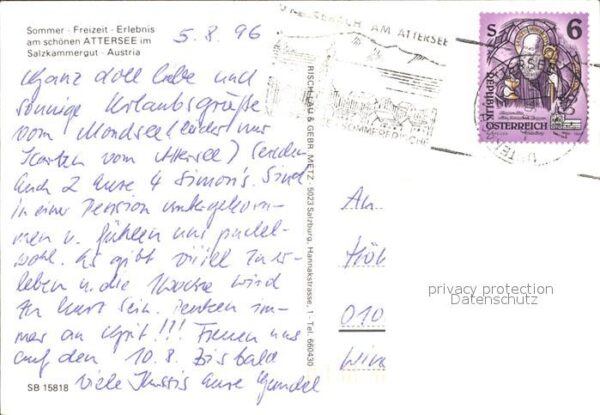 Sommer · Freizeit · Erlebnis
am schönen ATTERSEE im
Salzkammergut · Austria
5.8.96
Ganz doll liebe und
sonnige Urlaubsgrüße
vom Mondsee (leider nur
Karten vom Attersee) senden
Euch 2 Eure 4 Simon's. Sind
in einer Pension untergekom-
men u. fühlen uns pudel-
wohl. Es gibt viiiel zu er-
leben u. die Woche wird
zu kurz sein. Denken im-
mer an !!! Freuen uns
auf den 10.8. Bis bald
viele Bussis Eure Gundel
SB 15818
RISCHLAU & GEBR. METZ, 5023 Salzburg, Hannakstrasse, 1 - Tel. 660430
AM ATTERSEE
SOMMERFRISCHE
S 6
REPUBLIK
ÖSTERREICH
An
010
privacy protection
Datenschutz